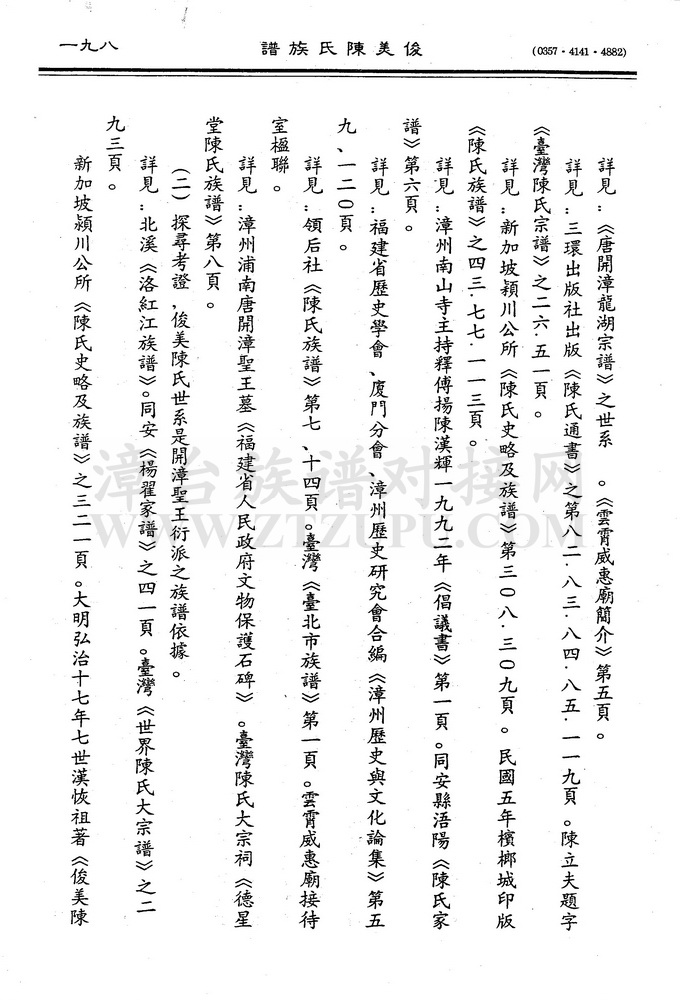 一九八
俊美陳氏族譜
(0357・4141・4882)
詳見：《唐開漳龍湖宗譜》之世系　。《雲霄威惠廟簡介》第五頁。
詳見：三環出版社出版《陳氏通書》之第八二·八三·八四·八五·一一九頁。陳立夫題字
《臺灣陳氏宗譜》之二六·五一頁。
詳見：新加坡潁川公所《陳氏史略及族譜》第三０八·三０九頁。民國五年檳榔城印版
《陳氏族譜》之四三·七七·一一三頁。
詳見：漳州南山寺主持釋傅揚陳漢輝一九九二年《倡議書》第一頁。同安縣浯陽《陳氏家
譜》第六頁。
詳見：福建省歷史學會、廈門分會、漳州歷史研究會合編《漳州歷史與文化論集》第五
九、一二０頁。
詳見：領后社《陳氏族譜》第七、十四頁。臺灣《臺北市族譜》第一頁。雲霄威惠廟接待
室楹聯。
詳見：漳州浦南唐開漳聖王墓《福建省人民政府文物保護石碑》。臺灣陳氏大宗祠《德星
堂陳氏族譜》第八頁。
（二）探尋考證，俊美陳氏世系是開漳聖王衍派之族譜依據。
詳見：北溪《洛紅江族譜》。同安《楊翟家譜》之四一頁。臺灣《世界陳氏大宗譜》之二
九三頁。
新加坡潁川公所《陳氏史略及族譜》之三二一頁。大明弘治十七年七世漢恢祖著《俊美陳
漳台族谱对接网
WWW.ZTZUPU.COM